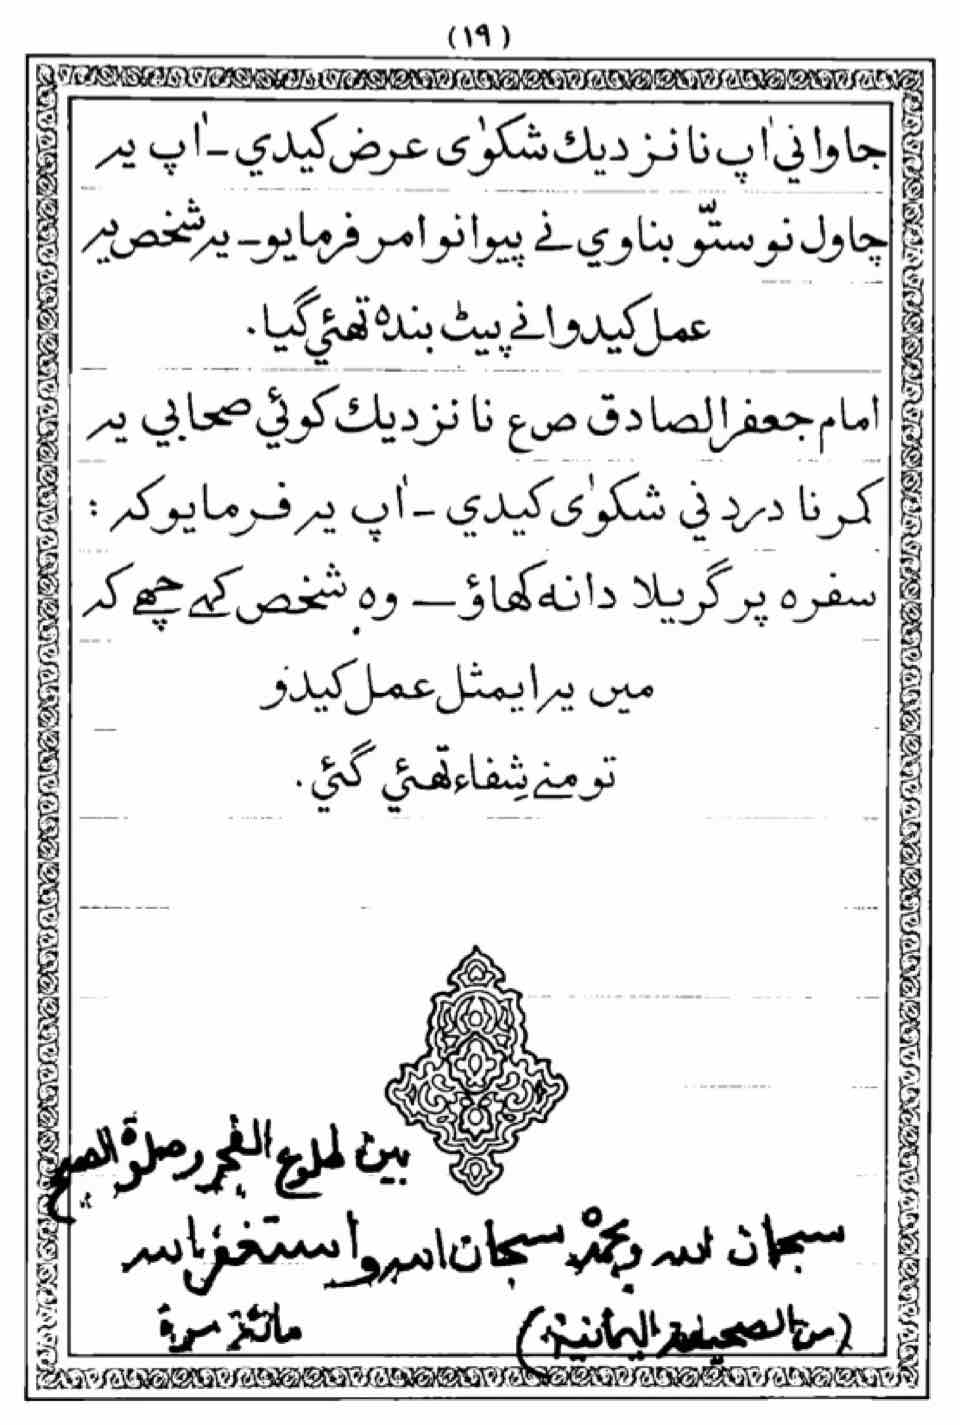 (١٩)
جاواني اٰپ نا نزديك شكوٰى عرض كيدي ـ اٰپ يہ
چاول نو ستّو بناوي نے پيوا نو امر فرمايو ـ يہ شخص يہ
عمل كيدو انے پيٹ بنده تھئي گيا.
امام جعفر الصادق صع نا نزديك كوئي صحابي يہ
كمر نا درد ني شكوٰى كيدي ـ اٰپ يہ فرمايو كہ :
سفره پر گريلا دانه كھاؤ ــ وه شخص كہے چھے كہ
ميں يہ ايمثل عمل كيدو
تو منے شِفاء تھئي گئي.
بين طلوع الفجر وصلوة الصبح
سبحان الله وبحمده سبحان الله واستغفر الله
(من الصحيفة اليمانية) مائة مرة